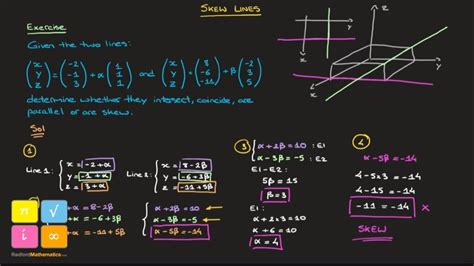 SKEW LINES
Exercise
Given the two lines:
(x y z) = (-2 -1 3) + α (1 1 1) and (x y z) = (8 -6 -11) + β (-2 3 5)
determine whether they intersect, coincide, are
parallel or are skew.
Sol
1
Line 1:
x = -2+α
y = -1+α
z = 3+α
Line 2:
x = 8-2β
y = -6+3β
z = -11+5β
+α = 8-2β
+α = -6+3β
+α = -11+5β
2
α+2β = 10
α-3β = -5
α-5β = -14
3
α+2β = 10 : E1
α-3β = -5 : E2
E1-E2:
5β = 15
β = 3
E1:
α+2×3 = 10
α+6 = 10
α = 4
4
α-5β = -14
4-5×3 = -14
4-15 = -14
-11 = -14 ×
SKEW
x
y
x
y
z
π
√
i
∞
RadfordMathematics.com